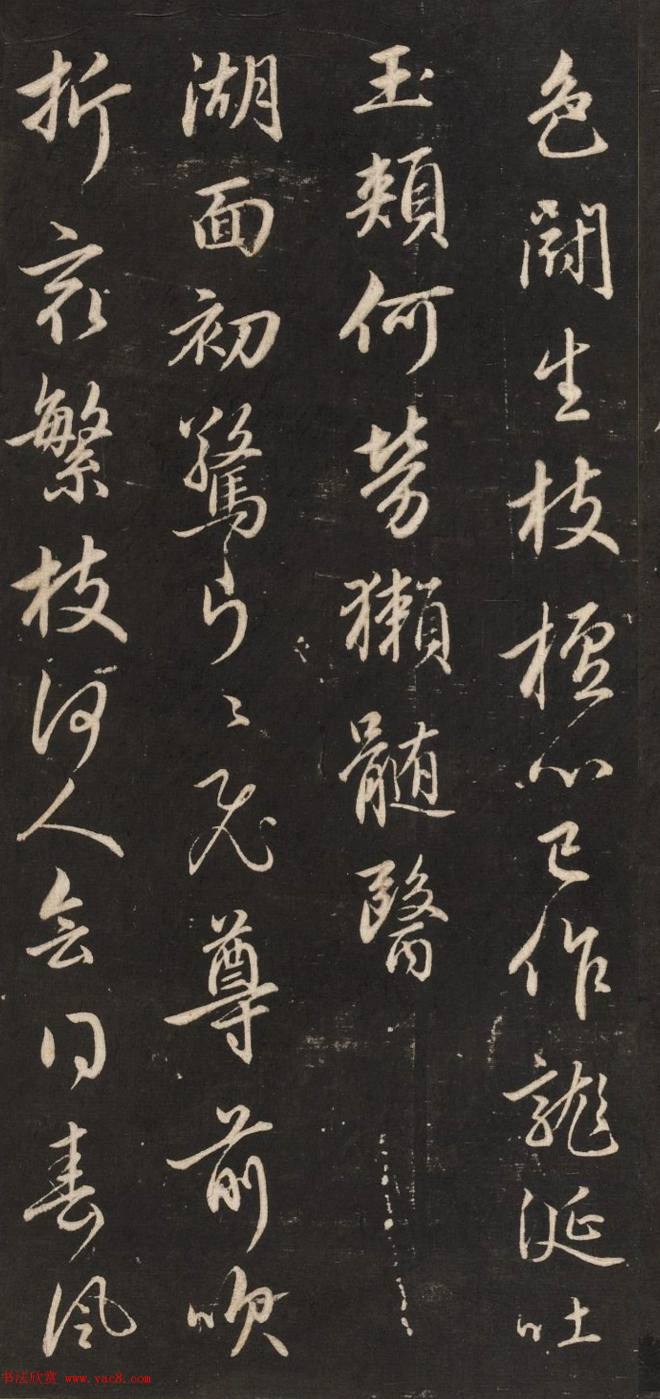 色鬭生枝檀心已作龍涎吐
玉頰何勞獺髓醫
湖面初驚片〻飛尊前吹
折最繁枝何人會得春風
书法欣赏 www.yac8.com